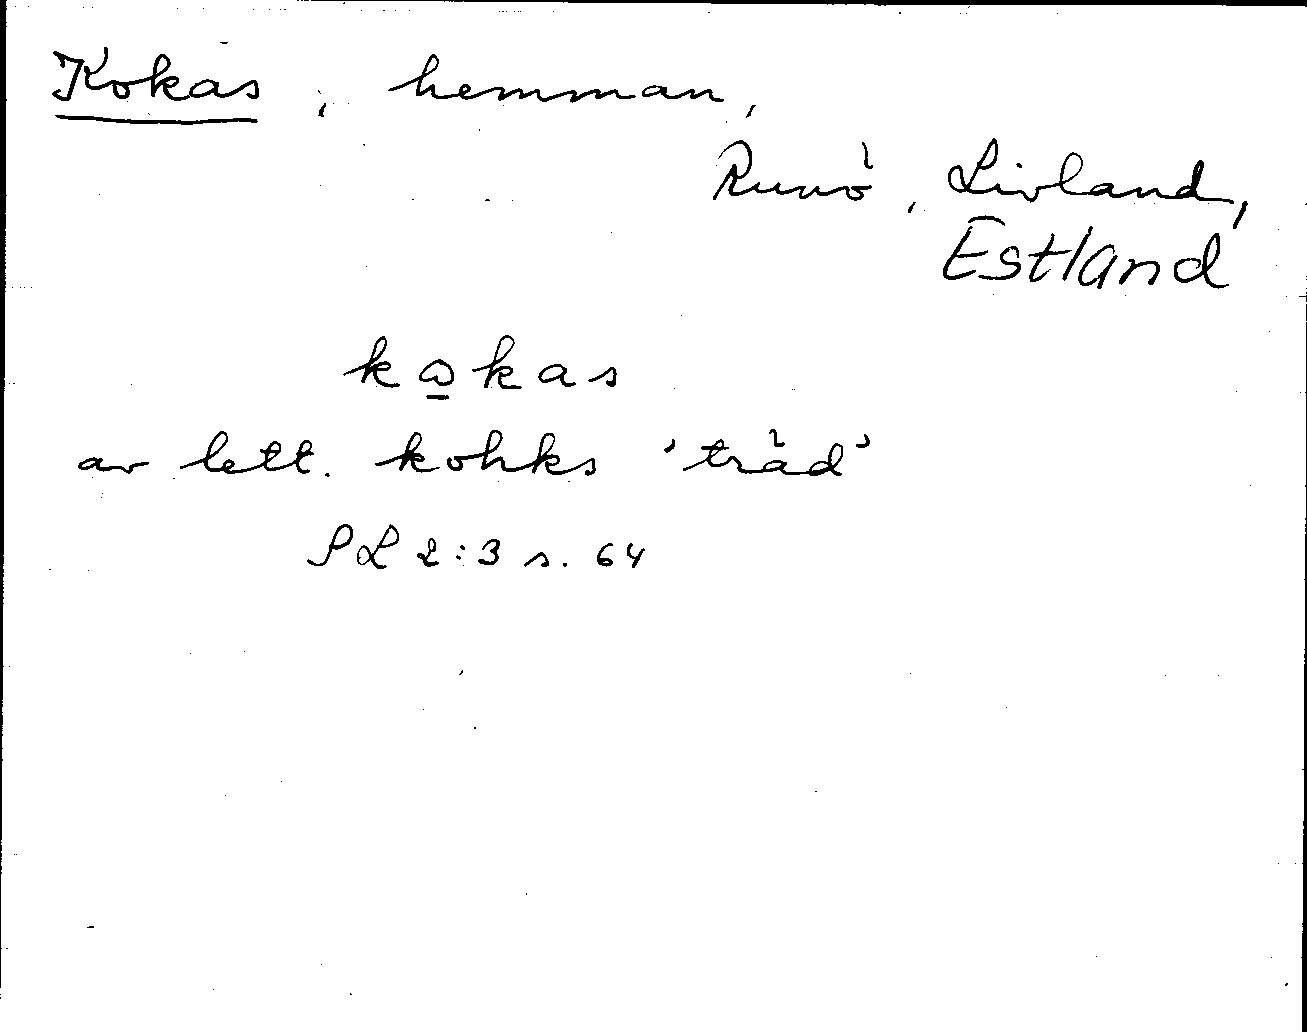 Kokas, hemman,
Runö, Livland,
Estland
kω̲kas
av lett. kohks 'träd'
SL 2:3 s. 64